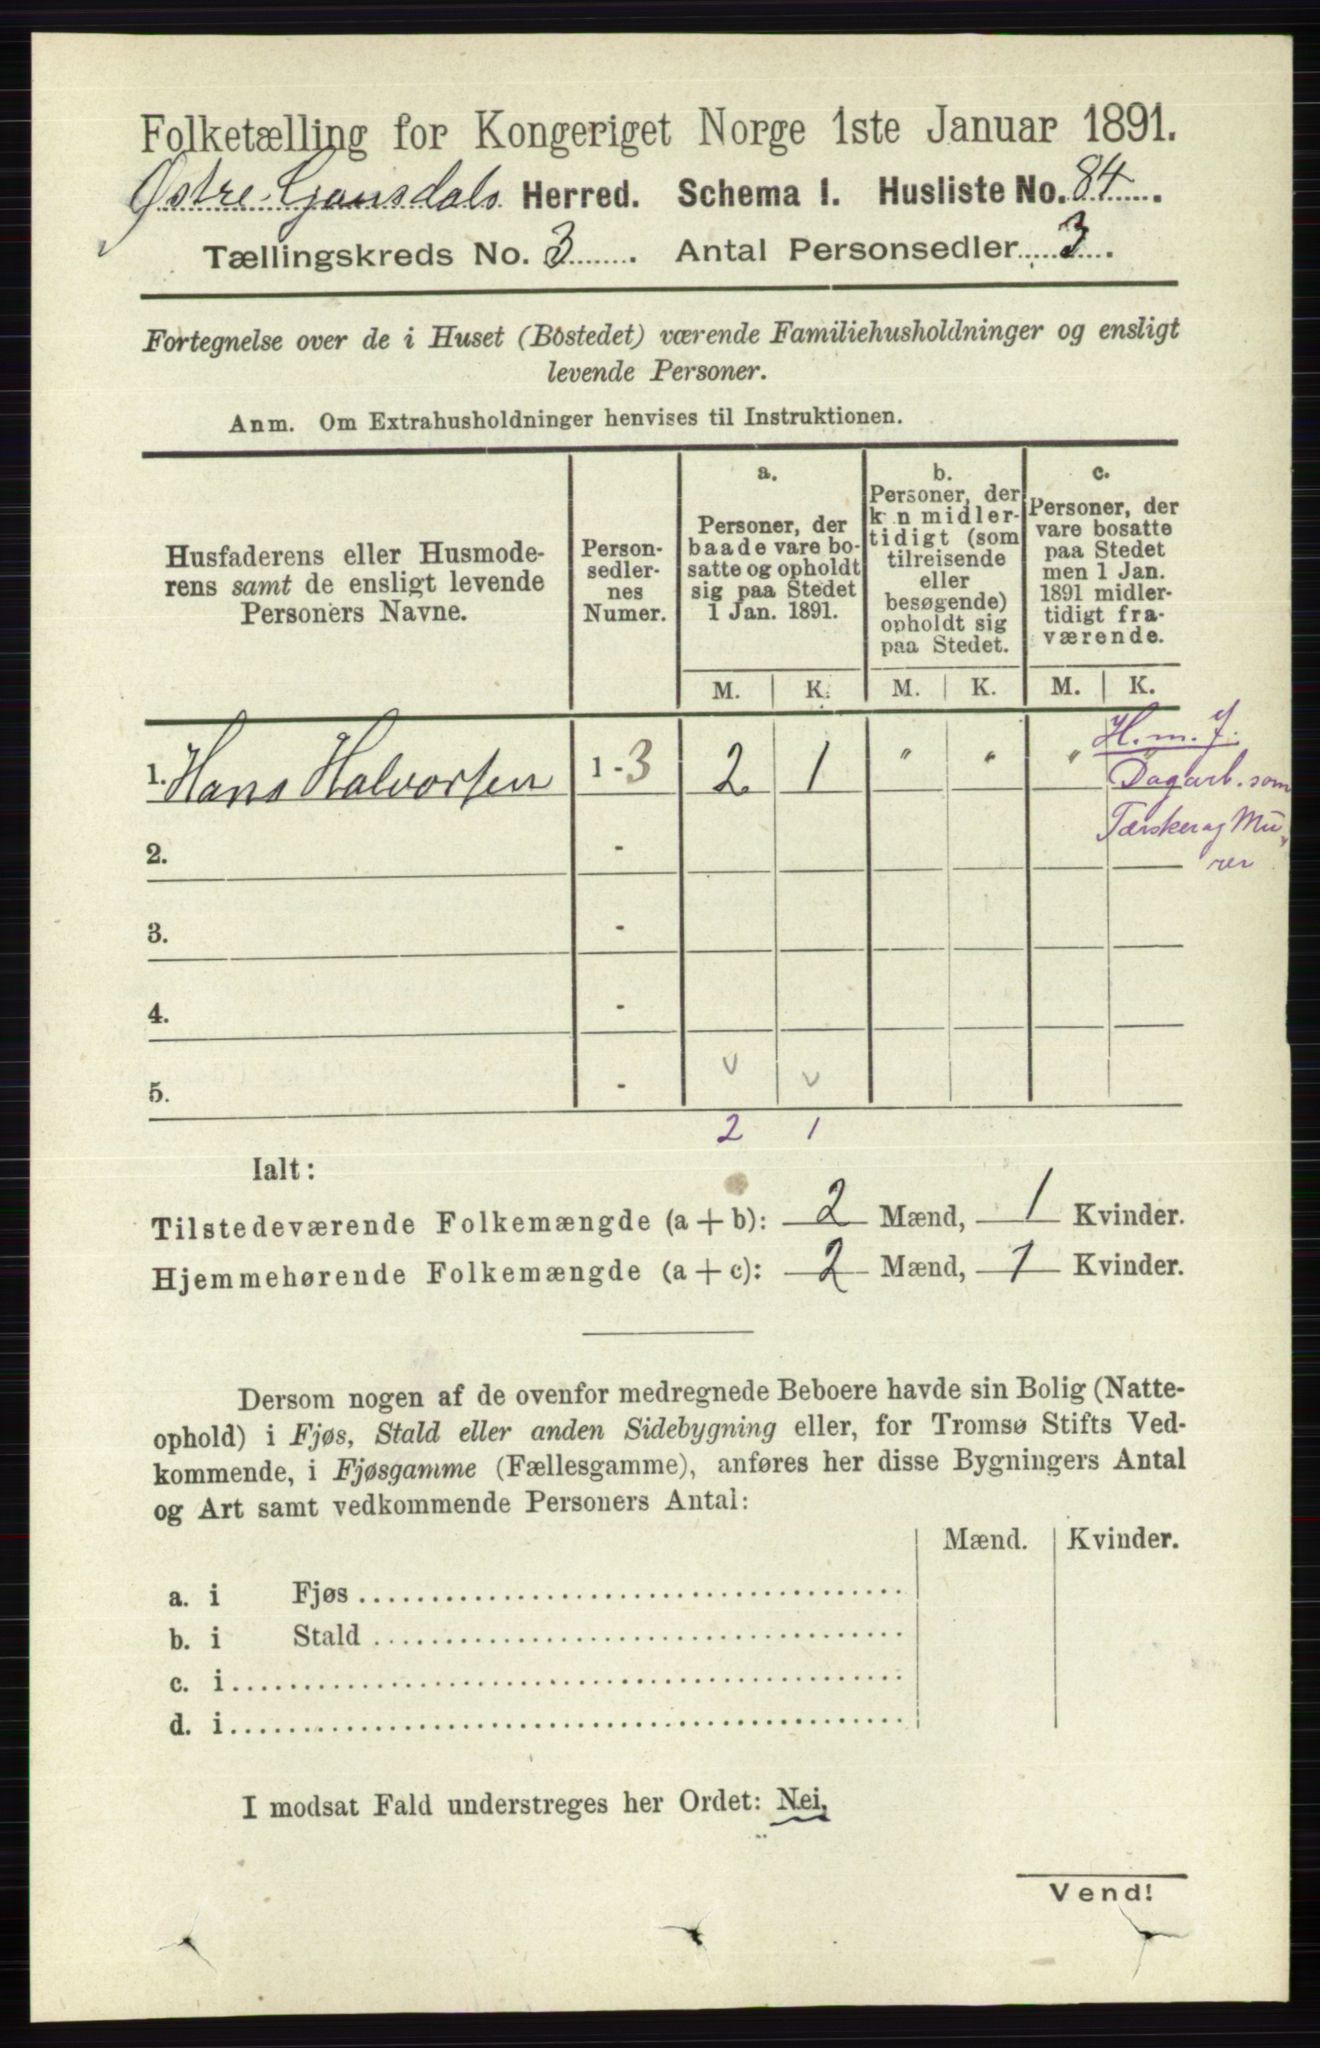 Folketælling for Kongeriget Norge 1ste Januar 1891.
Østre Gausdals Herred. Schema 1. Husliste No. 84.
Tællingskreds No. 3. Antal Personsedler 3.
Fortegnelse over de i Huset (Bostedet) værende Familiehusholdninger og ensligt
levende Personer.
Anm. Om Extrahusholdninger henvises til Instruktionen.
Husfaderens eller Husmode-
rens samt de ensligt levende
Personers Navne.
Person-
sedler-
nes
Numer.
a.
Personer, der
baade vare bo-
satte og opholdt
sig paa Stedet
1 Jan. 1891.
b.
Personer, der
kun midler-
tidigt (som
tilreisende
eller
besøgende)
opholdt sig
paa Stedet.
c.
Personer, der
vare bosatte
paa Stedet
men 1 Jan.
1891 midler-
tidigt fra-
værende.
M. K. M. K. M. K.
1. Hans Halvorsen 1-3 2 1 " " " "
H. m. J.
Dagarb. som
Tærsker og Mu-
rer
2. -
3. -
4. -
5. - v v
2 1
Ialt:
Tilstedeværende Folkemængde (a + b): 2 Mænd, 1 Kvinder.
Hjemmehørende Folkemængde (a + c): 2 Mænd, 1 Kvinder.
Dersom nogen af de ovenfor medregnede Beboere havde sin Bolig (Natte-
ophold) i Fjøs, Stald eller anden Sidebygning eller, for Tromsø Stifts Ved-
kommende, i Fjøsgamme (Fællesgamme), anføres her disse Bygningers Antal
og Art samt vedkommende Personers Antal:
Mænd. Kvinder.
a. i Fjøs
b. i Stald
c. i
d. i
I modsat Fald understreges her Ordet: Nei.
Vend!